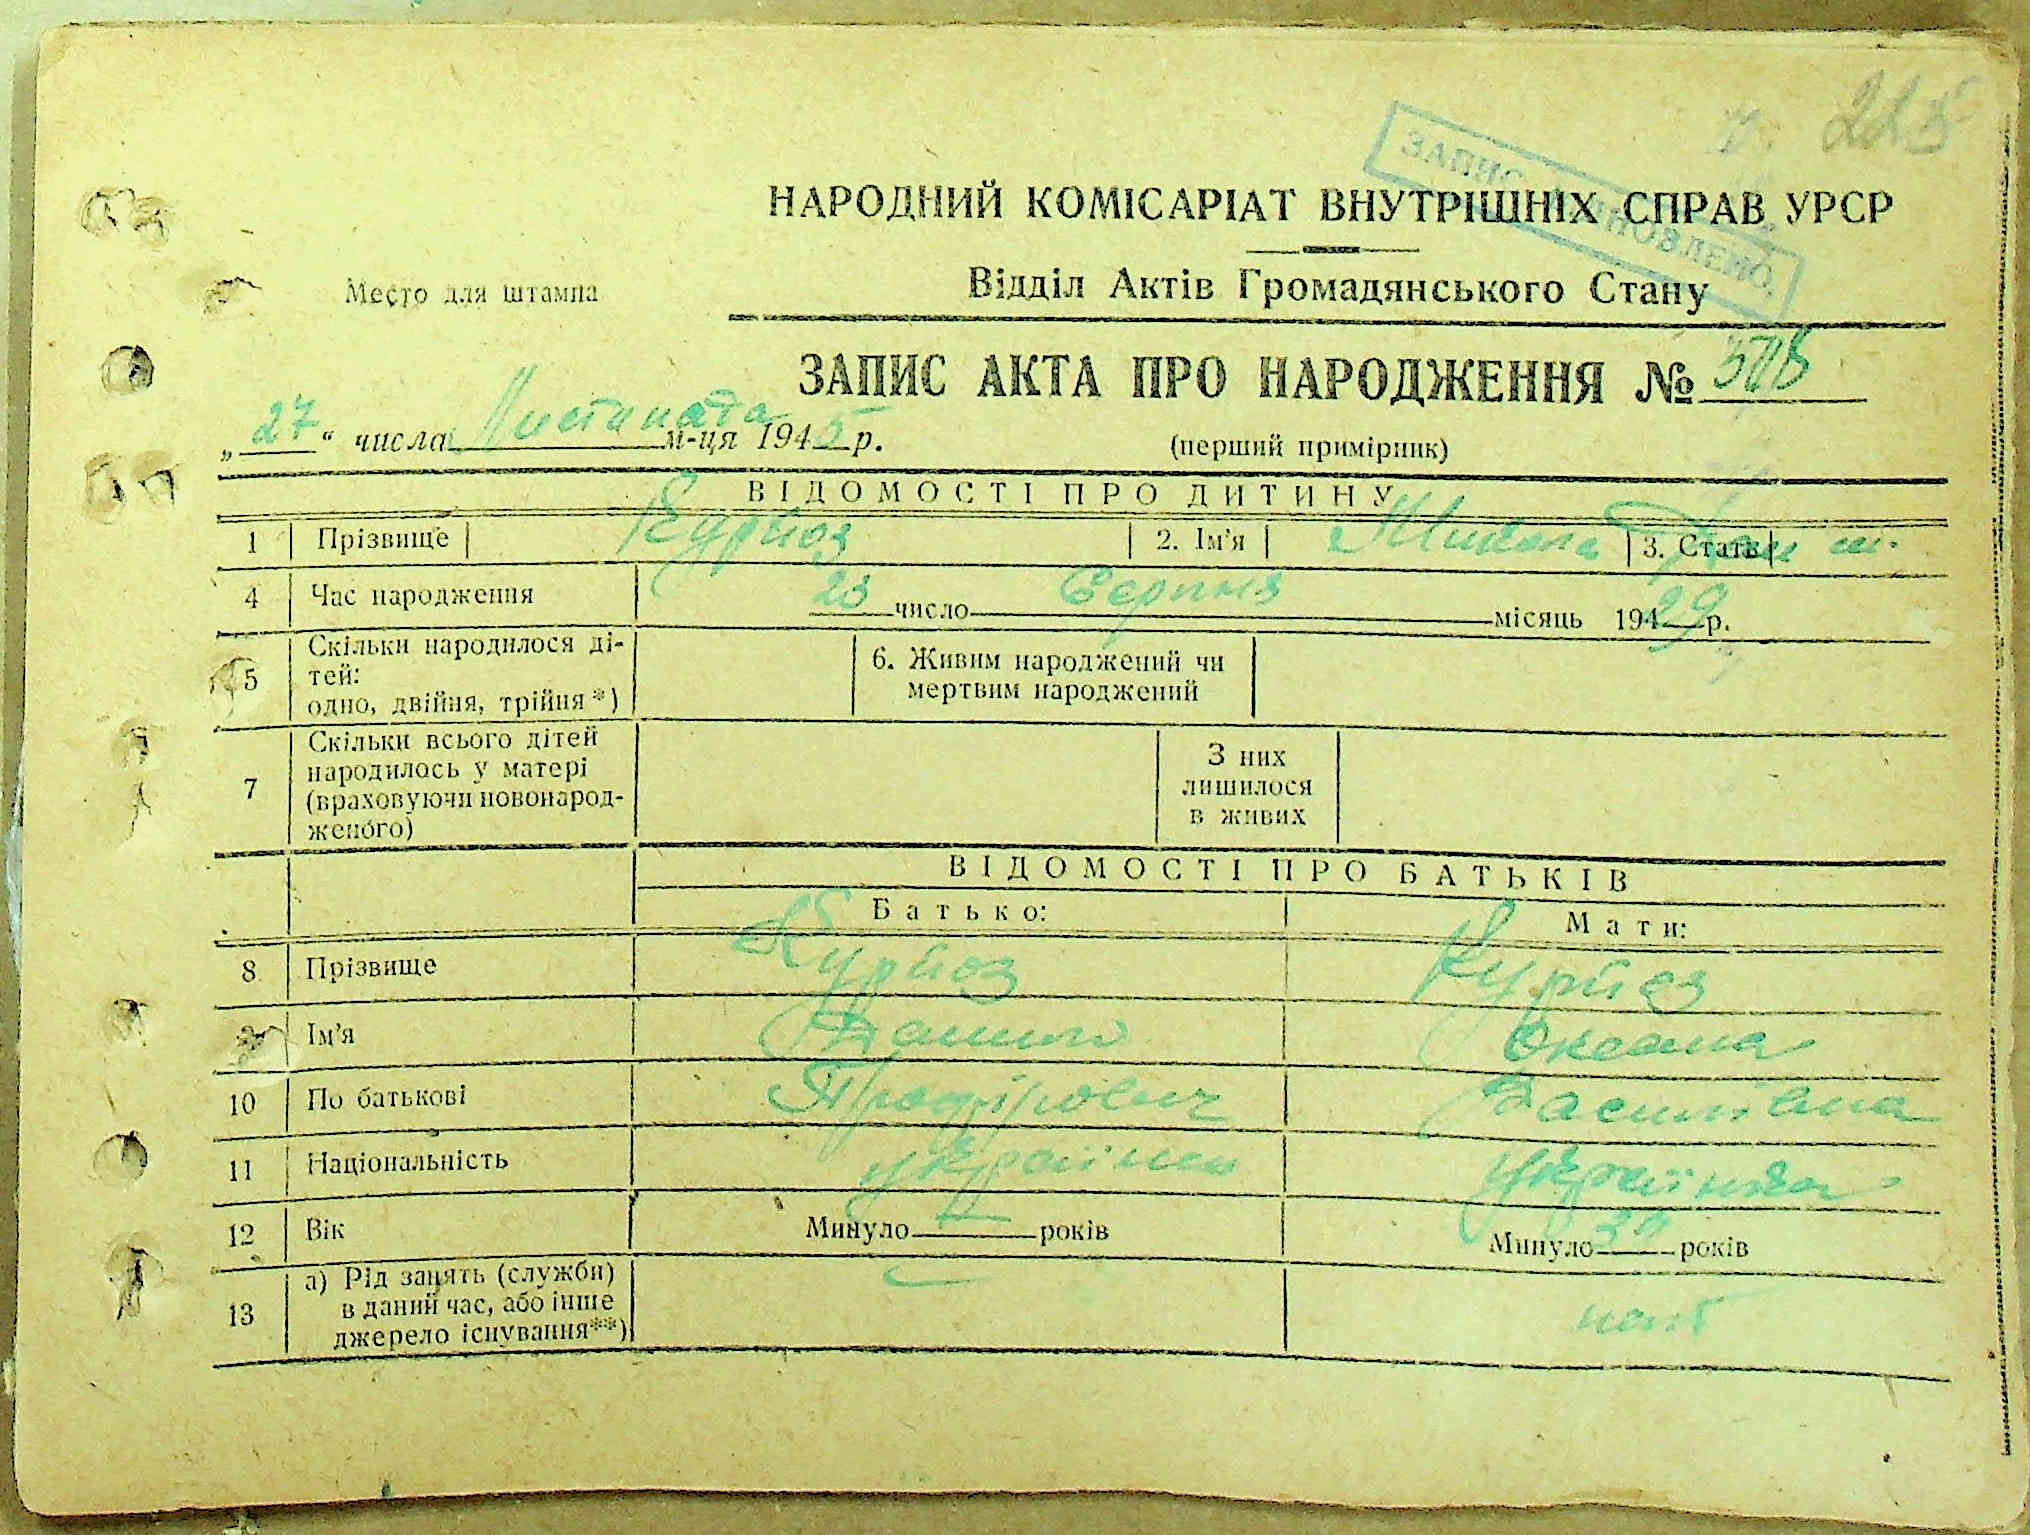 225
ЗАПИС ВІДНОВЛЕНО.
НАРОДНИЙ КОМІСАРІАТ ВНУТРІШНІХ СПРАВ УРСР
Место для штампа
Відділ Актів Громадянського Стану
ЗАПИС АКТА ПРО НАРОДЖЕННЯ №
„27“ числа Листопада м-ця 1945 р.
(перший примірник)
ВІДОМОСТІ ПРО ДИТИНУ
1 Прізвище Курйоз 2. Ім'я Микола 3. Стать
4 Час народження 23 число Серпня місяць 194 29 р.
5 Скільки народилося ді-
тей:
одно, двійня, трійня*)
6. Живим народжений чи
мертвим народжений
7 Скільки всього дітей
народилось у матері
(враховуючи новонарод-
женого)
З них
лишилося
в живих
ВІДОМОСТІ ПРО БАТЬКІВ
Батько: Мати:
8 Прізвище Курйоз Курйоз
9 Ім'я Данило Оксана
10 По батькові Василівна
11 Національність українец українка
12 Вік Минуло — років Минуло років
13 а) Рід занять (служби)
в даний час, або інше
джерело існування**)